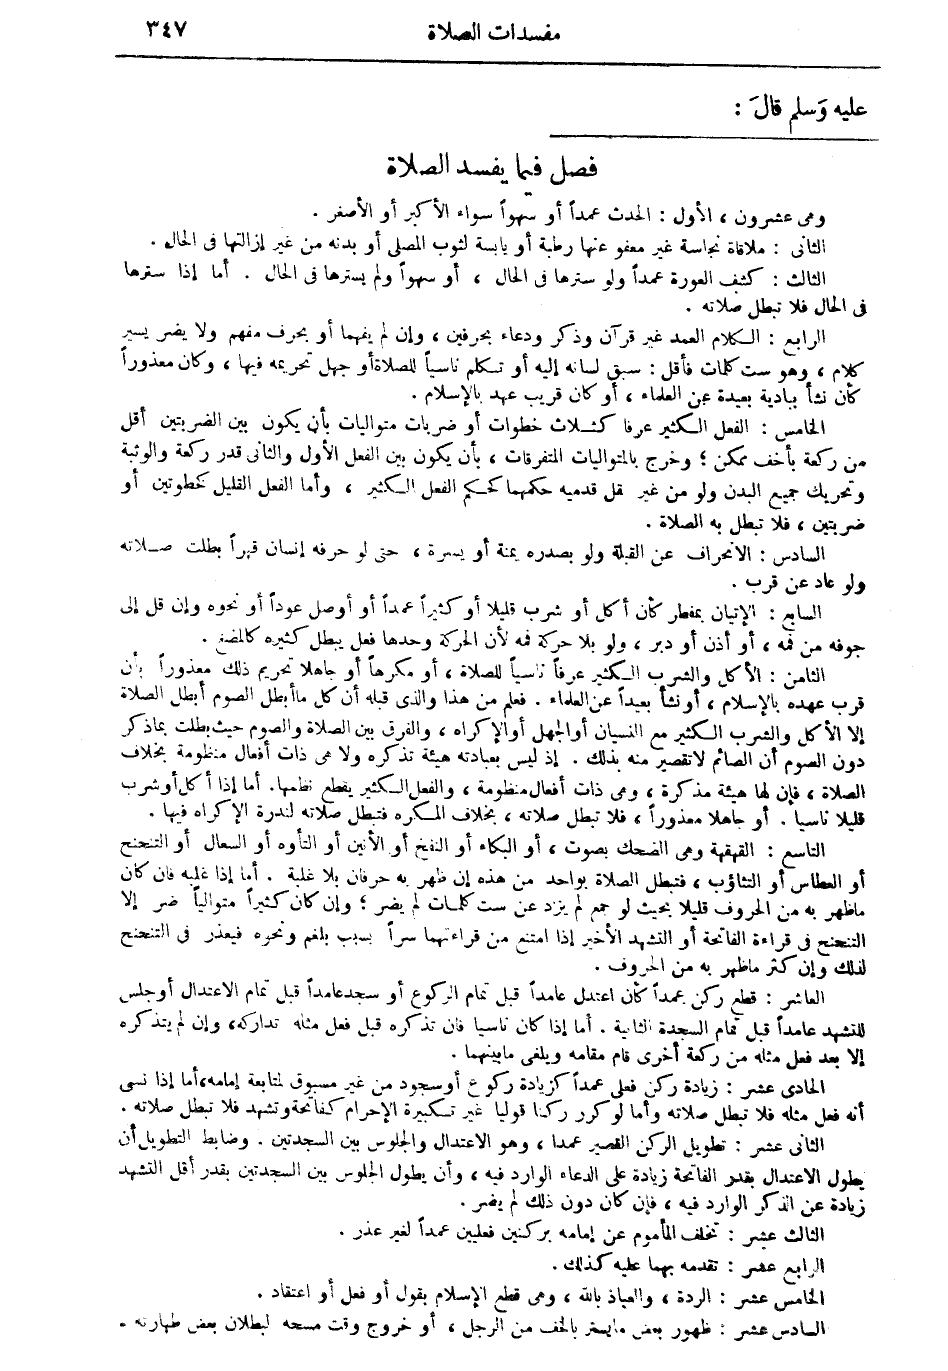 مفسدات الصلاة ٣٤٧
عليه وَسلم قالَ :
فصل فيما يفسد الصلاة
وهى عشرون ، الأول : الحدث عمداً أو سهواً سواء الأكبر أو الأصغر .
الثانى : ملاقاة نجاسة غير معفو عنها رطبة أو يابسة لثوب المصلى أو بدنه من غير إزالتها فى الحال .
الثالث : كشف العورة عمداً ولو سترها فى الحال ، أو سهواً ولم يسترها فى الحال . أما إذا سترها
فى الحال فلا تبطل صلاته .
الرابع : الكلام العمد غير قرآن وذكر ودعاء بحرفين ، وإن لم يفهما أو بحرف مفهم ولا يضر يسير
كلام ، وهو ست كلمات فأقل : سبق لسانه إليه أو تكلم ناسياً للصلاة أو جهل تحريمه فيها ، وكان معذوراً
كأن نشأ ببادية بعيدة عن العلماء ، أو كان قريب عهد بالإسلام .
الخامس : الفعل الكثير عرفا كثلاث خطوات أو ضربات متواليات بأن يكون بين الضربتين أقل
من ركعة بأخف ممكن ؛ وخرج بالمتواليات المتفرقات ، بأن يكون بين الفعل الأول والثانى قدر ركعة والوثبة
وتحريك جميع البدن ولو من غير نقل قدميه حكمهما كحكم الفعل الكثير ، وأما الفعل القليل كخطوتين أو
ضربتين ، فلا تبطل به الصلاة .
السادس : الانحراف عن القبلة ولو بصدره يمنة أو يسرة ، حتى لو حرفه إنسان قهراً بطلت صلاته
ولو عاد عن قرب .
السابع : الإتيان بمفطر كأن أكل أو شرب قليلا أو كثيراً عمداً أو أوصل عوداً أو نحوه وإن قل إلى
جوفه من فمه ، أو أذن أو دبر ، ولو بلا حركة فمه لأن الحركة وحدها فعل يبطل كثيره كالمضغ .
الثامن : الأكل والشرب الكثير عرفاً ناسياً للصلاة ، أو مكرهاً أو جاهلا تحريم ذلك معذوراً بأن
قرب عهده بالإسلام ، أو نشأ بعيداً عن العلماء . فعلم من هذا والذى قبله أن كل ما أبطل الصوم أبطل الصلاة
إلا الأكل والشرب الكثير مع النسيان أو الجهل أو الإكراه ، والفرق بين الصلاة والصوم حيث بطلت بماذكر
دون الصوم أن الصائم لا تقصير منه بذلك . إذ ليس بعبادته هيئة تذكره ولا هى ذات أفعال منظومة بخلاف
الصلاة ، فإن لها هيئة مذكرة ، وهى ذات أفعال منظومة ، والفعل الكثير يقطع نظمها. أما إذا أكل أو شرب
قليلا ناسيا . أو جاهلا معذوراً ، فلا تبطل صلاته ، بخلاف المكره فتبطل صلاته لندرة الإكراه فيها .
التاسع : القهقهة وهى الضحك بصوت ، أو البكاء أو النفخ أو الأنين أو التأوه أو السعال أو التنحنح
أو العطاس أو التثاؤب ، فتبطل الصلاة بواحد من هذه إن ظهر به حرفان بلا غلبة . أما إذا غلبه فان كان
ماظهر به من الحروف قليلا بحيث لو جمع لم يزد عن ست كلمات لم يضر ؛ وإن كان كثيراً متوالياً ضر إلا
التنحنح فى قراءة الفاتحة أو التشهد الأخير إذا امتنع من قراءتهما سراً بسبب بلغم ونحوه فيعذر فى التنحنح
لذلك وإن كثر ماظهر به من الحروف .
العاشر : قطع ركن عمداً كأن اعتدل عامداً قبل تمام الركوع أو سجد عامداً قبل تمام الاعتدال أو جلس
للتشهد عامداً قبل تمام السجدة الثانية . أما إذا كان ناسيا فان تذكره قبل فعل مثله تداركه، وإن لم يتذكره
إلا بعد فعل مثله من ركعة أخرى قام مقامه ويلغى مابينهما .
الحادى عشر : زيادة ركن فعلى عمداً كزيادة ركوع أو سجود من غير مسبوق لمتابعة إمامه، أما إذا نسى
أنه فعل مثله فلا تبطل صلاته وأما لو كرر ركنا قوليا غير تكبيرة الإحرام كفاتحة وتشهد فلا تبطل صلاته .
الثانى عشر : تطويل الركن القصير عمدا ، وهو الاعتدال والجلوس بين السجدتين . وضابط التطويل أن
يطول الاعتدال بقدر الفاتحة زيادة على الدعاء الوارد فيه ، وأن يطول الجلوس بين السجدتين بقدر أقل التشهد
زيادة عن الذكر الوارد فيه ، فإن كان دون ذلك لم يضر .
الثالث عشر : تخلف المأموم عن إمامه بركنين فعليين عمداً لغير عذر .
الرابع عشر : تقدمه بهما عليه كذلك .
الخامس عشر : الردة ، والعياذ بالله ، وهى قطع الإسلام بقول أو فعل أو اعتقاد .
السادس عشر : ظهور بعض مايستر بالخف من الرجل ، أو خروج وقت مسحه لبطلان بعض طهارته .